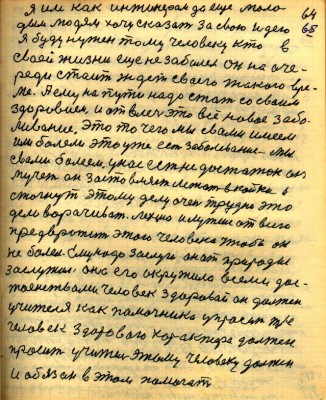 64
Я им как интинерам да еще моло
65
дым людям хочу сказать за свою идею
Я буду нужен тому человеку кто в
своей жизни еще не заболел он на оче-
реди стоит ждет своего такого вре-
ме. А ему на пути надо стать со своим
здоровием и отвлеч это всё новое забо-
ливание. Это то чего мы с вами имеем
им болеем это уже есть заболевание мы
с вами болеем у нас есть недостаток он
мучет он заставляет лежать в койки в
стогнут этому делу очен трудно это
дело ворачиват. лехко и лутше от всего
предвратит этого человека чтобы он
не болел. Слухайо заслуги он от природы
заслужил она его окружила всеми дос-
тоенствами человек здоровай он должен
учителя как помочника упросит т/ж
человек здорового характера должен
просит учител этому человеку должен
и обязан в этом помогат